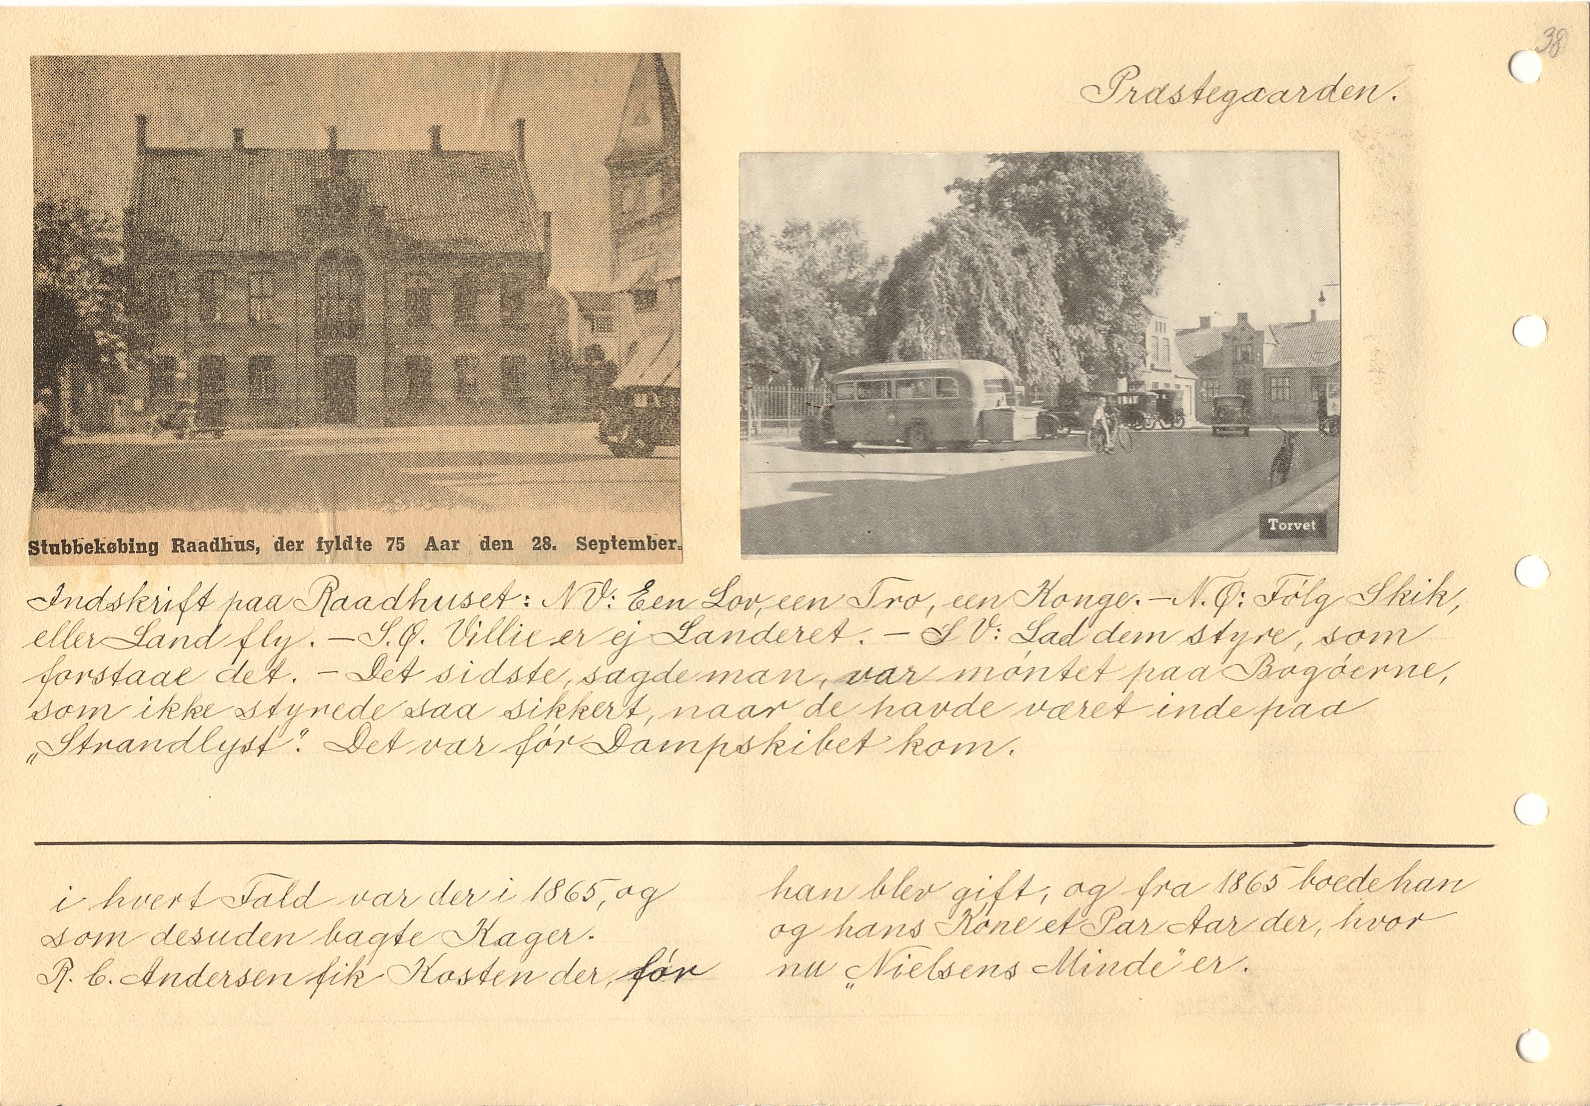 38
Præstegaarden.
Torvet
Stubbekøbing Raadhus, der fyldte 75 Aar den 28. September.
Indskrift paa Raadhuset: NV: Een Lov, een Tro, een Konge. – N.Ø: Følg Skik,
eller Land fly. – S.Ø. Villie er ej Landeret. – S V: Lad dem styre, som
forstaae det. – Det sidste, sagde man, var møntet paa Bogøerne,
som ikke styrede saa sikkert, naar de havde været inde paa
„Strandlyst". Det var før Dampskibet kom.
i hvert Fald var der i 1865, og
som desuden bagte Kager.
R. C. Andersen fik Kosten der, før
han blev gift, og fra 1865 boede han
og hans Kone et Par Aar der, hvor
nu „Nielsens Minde" er.